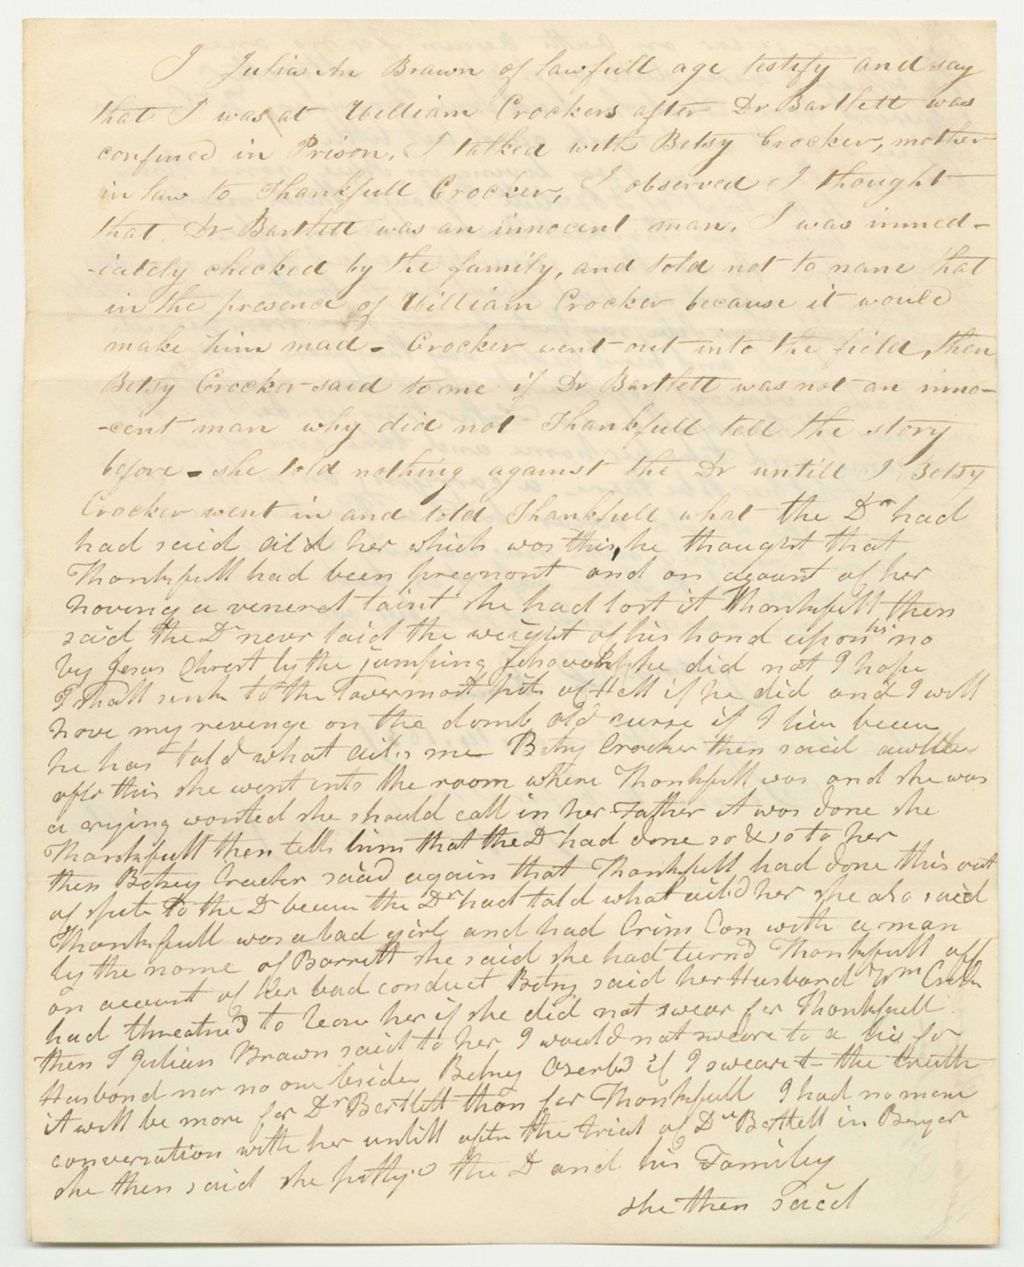 I Julia An Brawn of lawfull age testify and say
that I was at William Crockers after Dr Bartlett was
confined in Prison, I talked with Betsy Crocker, mother
in law to Thankfull Crocker, I observed I thought
that Dr Bartlett was an innocent man, I was immed-
-iately checked by the family, and told not to name that
in the presence of William Crocker because it would
make him mad - Crocker went out into the field, then
Betsy Crocker said to me if Dr Bartlett was not an inno-
-cent man why did not Thankfull tell the story
before - she told nothing against the Dr untill I Betsy
Crocker went in and told Thankfull what the Dr had
had said aild her which was this, he thought that
Thankfull had been pregnant and on acount of her
having a veneral taint she had lost it Thankfull then
said the Dr never laid the weight of his hand upon no
by Jesus Christ by the jumping Jehovah if he did not I hope
I shall sink to the lowermost pits of Hell if he did and I will
have my revenge on the domb old curse if I live
he has told what ails me Betsy Crocker then said
after this she went into the room where Thankfull was and she was
a crying wanted she should call in her Father it was done she
Thankfull then tells him that the Dr had done so & so to her
then Betsey Crocker said again that Thankfull had done this out
of spite to the Dr the Dr had told what aild her she also said
Thankfull was a bad girl and had Crim Con with a man
by the name of Barrett she said she had turnd Thankfull off
on account of her bad conduct Betsy said her Husband Wm
had threatned to leave her if she did not swear for Thankfull
then I Julian Brawn said to her I would not sweare to a lie for
Husband nor no one beside Betsey if I sweare to the truth
it will be more for Dr Bartlett than for Thankfull I had no more
conversation with her untill after the trial of Dr Bartlett in Bangor
she then said she pittyd the Dr and his Familey
she then said